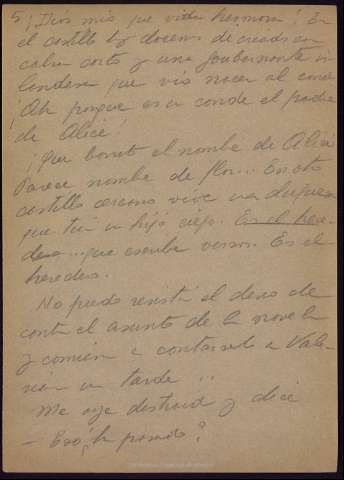 5 ¡Dios mio que vida hermosa! En
el castillo hay docenas de criados en
calzon corto y una gobernanta ir
landesa que vió nacer al conde
¡Ah porque es un conde el padre
de Alice!
¡Que bonito el nombre de Alice
Parece nombre de flor... En otro
castillo cercano vive una duquesa
que tiene un hijo ciego. Es el here
dero... que escribe versos. Es el
heredero.
No puedo resistir el deseo de
contar el asunto de la novela
y comienzo a contarselo a Vale
una tarde ..
Me oye distraida y dice
- Eso ha pasado?